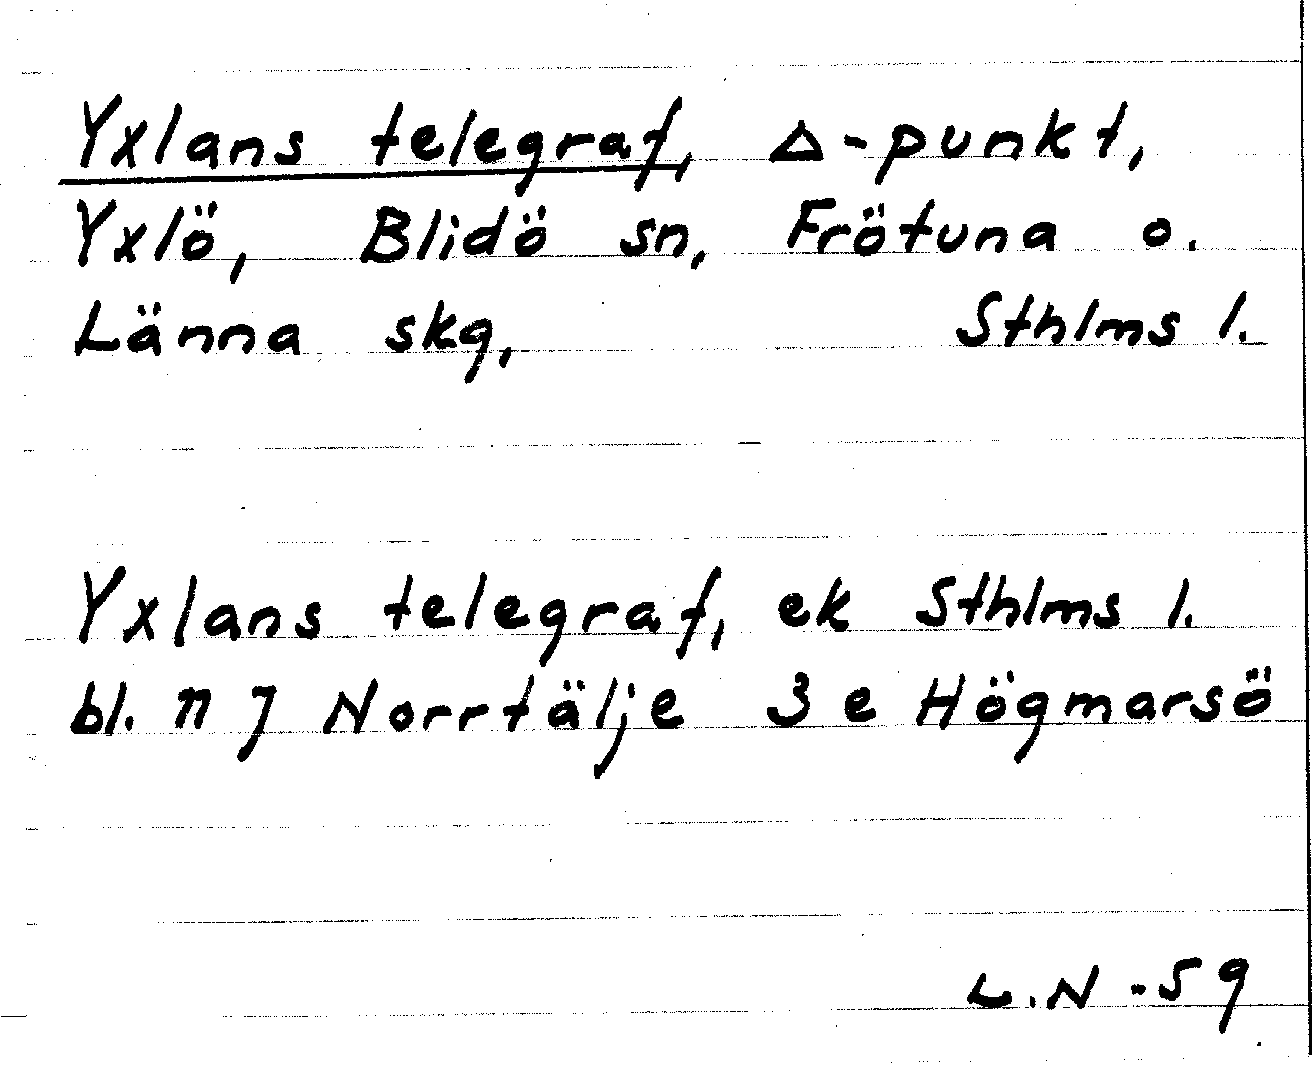 Yxlans telegraf, △-punkt,
Yxlö, Blidö sn, Frötuna o.
Länna skg, Sthlms l.
Yxlans telegraf, ek Sthlms l.
bl. 117 Norrtälje 3 e Högmarsö
L.N -59